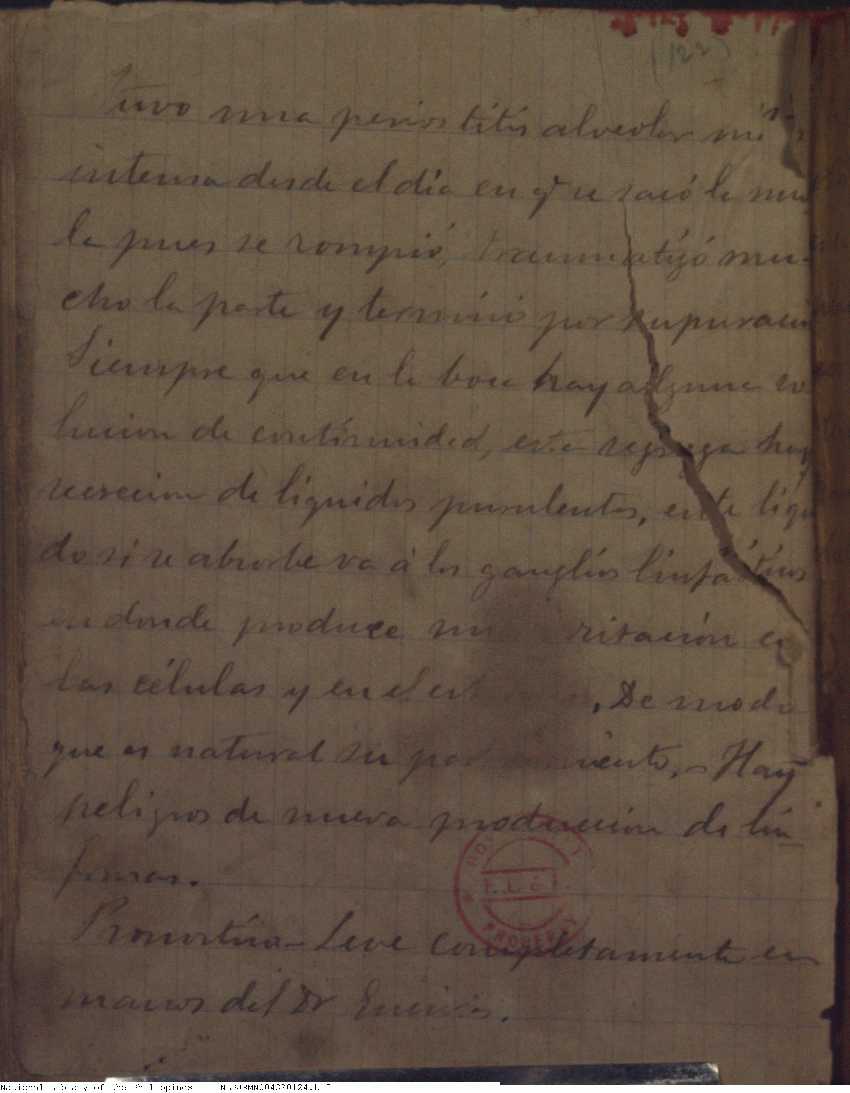 (122)
Tuvo una periostitis alveolar
intensa desde el día en q̃ se sacó la mue
la pues se rompió, traumatizó mu-
cho la parte y terminó por supuración
Siempre que en la boca hay alguna so
lución de continuidad, esta segrega hay
secreción de líquidos purulentos, este líqui
do si se absorbe va á los ganglios linfáticos
en donde produce una irritación en
las células y en el De modo
que es natural su Hay
peligros de nueva producción de lin
fomas.
Pronóstico - Leve completamente en
manos del Dr
PROPERTY
National Library of the Philippines